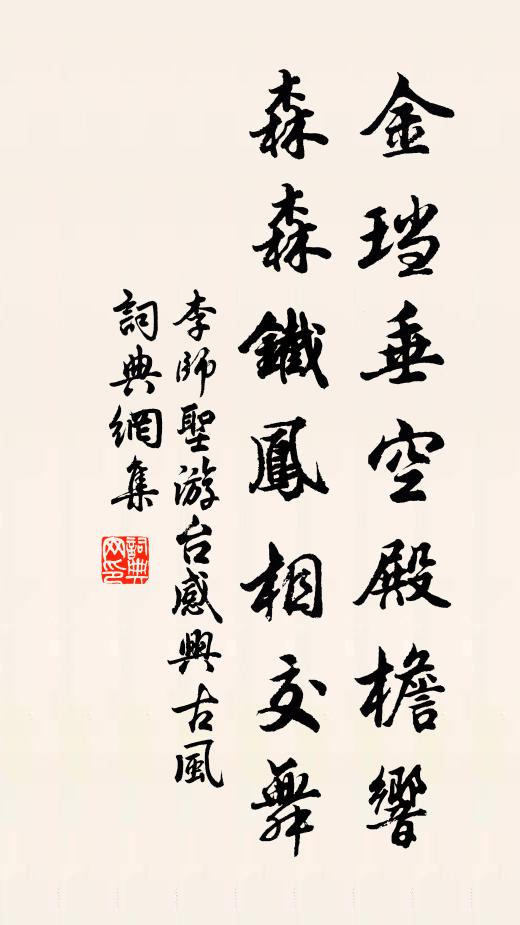 金珰垂空殿檐響
森森鐵鳳相交舞
李師聖游台感興古風
詞典網集
詞典網印